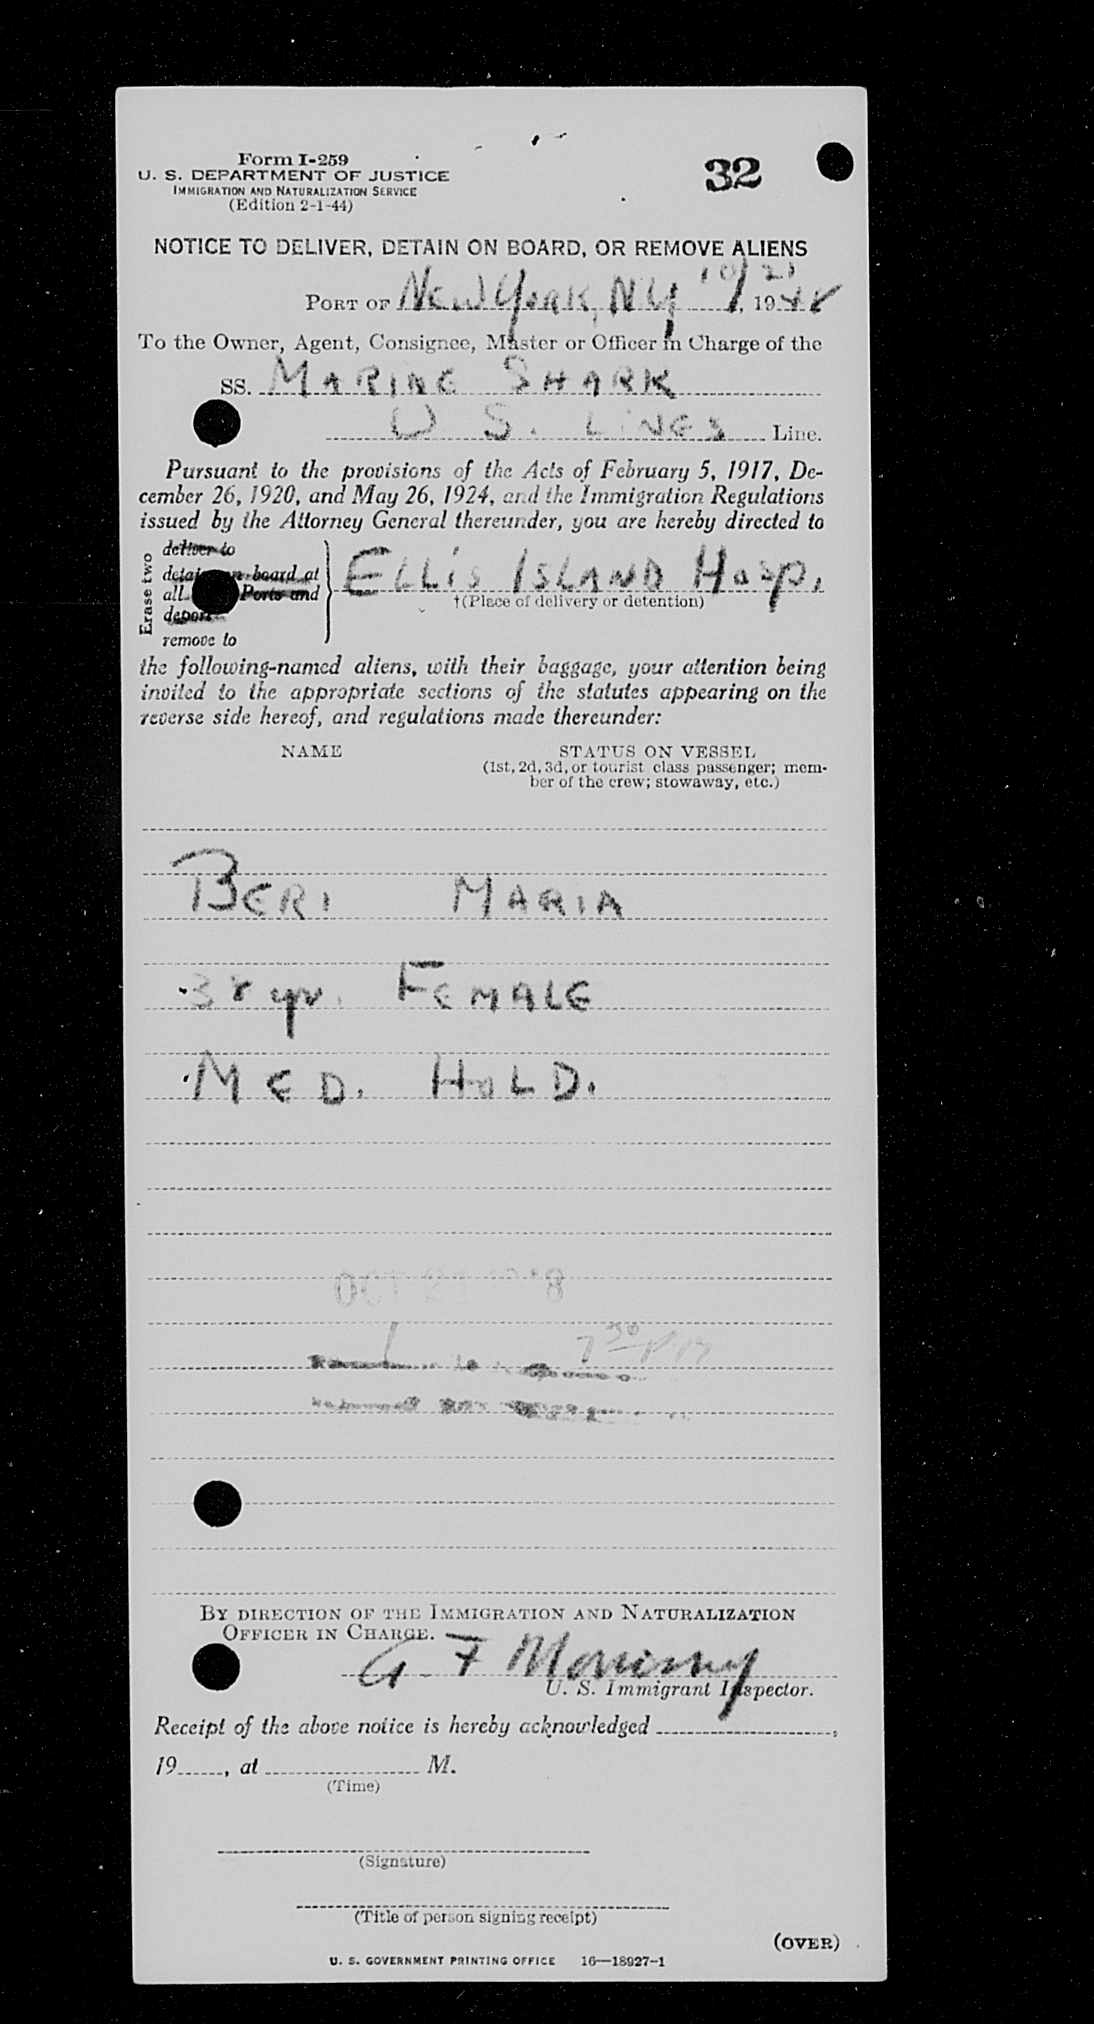 Form I-259
32
U. S. DEPARTMENT OF JUSTICE
IMMIGRATION AND NATURALIZATION SERVICE
(Edition 2-1-44)
NOTICE TO DELIVER, DETAIN ON BOARD, OR REMOVE ALIENS
PORT OF New York, NY 10/21, 1948
To the Owner, Agent, Consignee, Master or Officer in Charge of the
SS. MARINE SHARK
U S. LINES Line.
Pursuant to the provisions of the Acts of February 5, 1917, De-
cember 26, 1920, and May 26, 1924, and the Immigration Regulations
issued by the Attorney General thereunder, you are hereby directed to
Erase two
deliver to
detain on board at
all Ports and
deport
remove to
ELLIS ISLAND HOSP.
†(Place of delivery or detention)
the following-named aliens, with their baggage, your attention being
invited to the appropriate sections of the statutes appearing on the
reverse side hereof, and regulations made thereunder:
NAME STATUS ON VESSEL
(1st, 2d, 3d, or tourist class passenger; mem-
ber of the crew; stowaway, etc.)
BERI MARIA
38 yr. FEMALE
MED. HOLD.
OCT 21 1948
7 30 PM
BY DIRECTION OF THE IMMIGRATION AND NATURALIZATION
OFFICER IN CHARGE.
G F
U. S. Immigrant Inspector.
Receipt of the above notice is hereby acknowledged ,
19 , at M.
(Time)
(Signature)
(Title of person signing receipt)
(OVER)
U. S. GOVERNMENT PRINTING OFFICE 16—18927-1